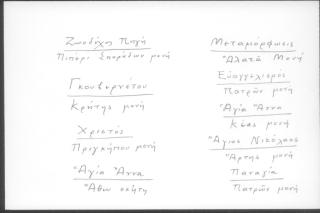 Ζωοδόχος Πηγή
Πιπέρι Σποράδων μονή
Γκουβερνέτου
Κρήτης μονή
Χριστός
Πριγκήπου μονή
Ἁγία Ἄννα
Ἄθω σκήτη
Μεταμόρφωσις
Μονή
Εὐαγγελισμός
Πατρῶν μονή
Ἁγία Ἄννα
Κέας μονή
Ἅγιος Νικόλαος
Ἄρτης μονή
Παναγία
Πατρῶν μονή